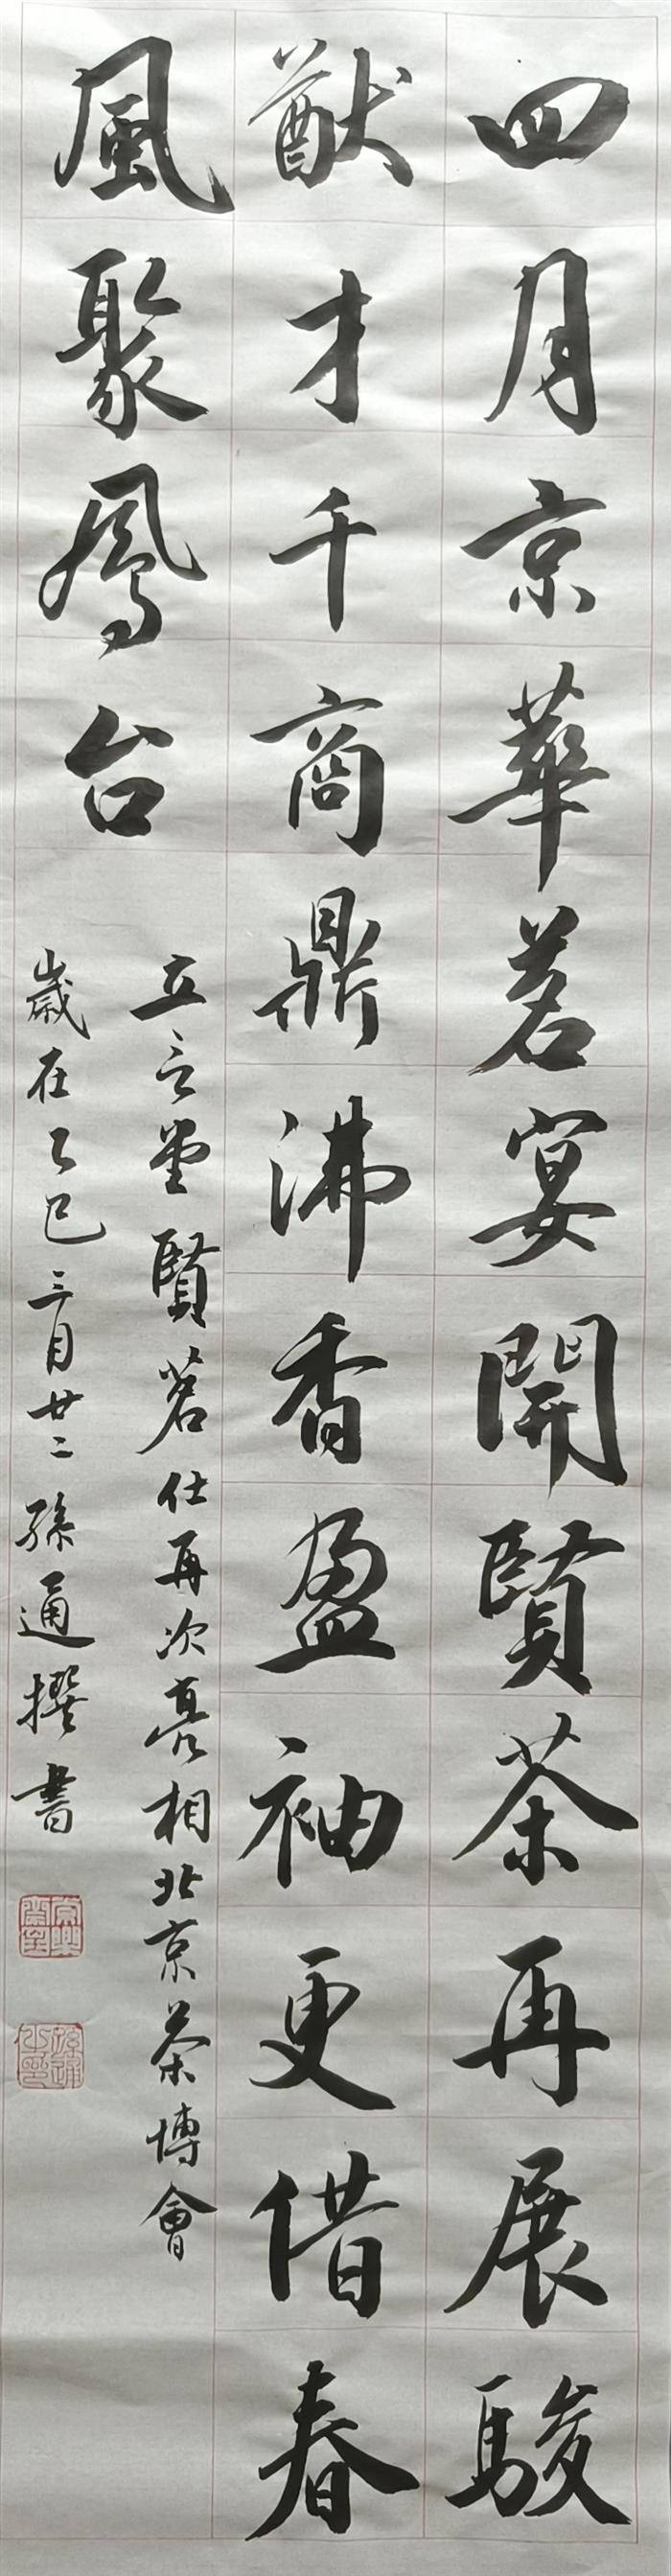 四月京華茗宴開賢茶再展駿
猷才千商鼎沸香盈袖更借春
風聚鳳台
立言堂賢茗仕再次亮相北京茶博會
歲在乙巳三月廿二孫通撰書